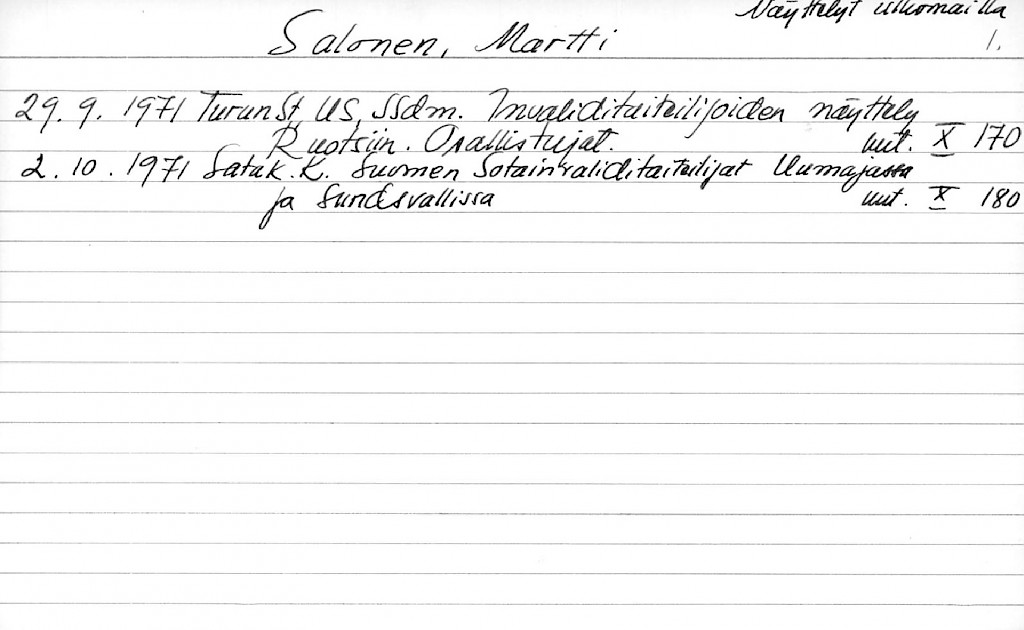 Näyttelyt ulkomailla
Salonen, Martti 1.
29. 9. 1971 TurunSt, US, SSdm. Invaliditaiteilijoiden näyttely
Ruotsiin. Osallistujat. uut. X 170
2. 10. 1971 Satak. K. Suomen Sotainvaliditaiteilijat Uumajassa
ja Sundsvallissa uut. X 180